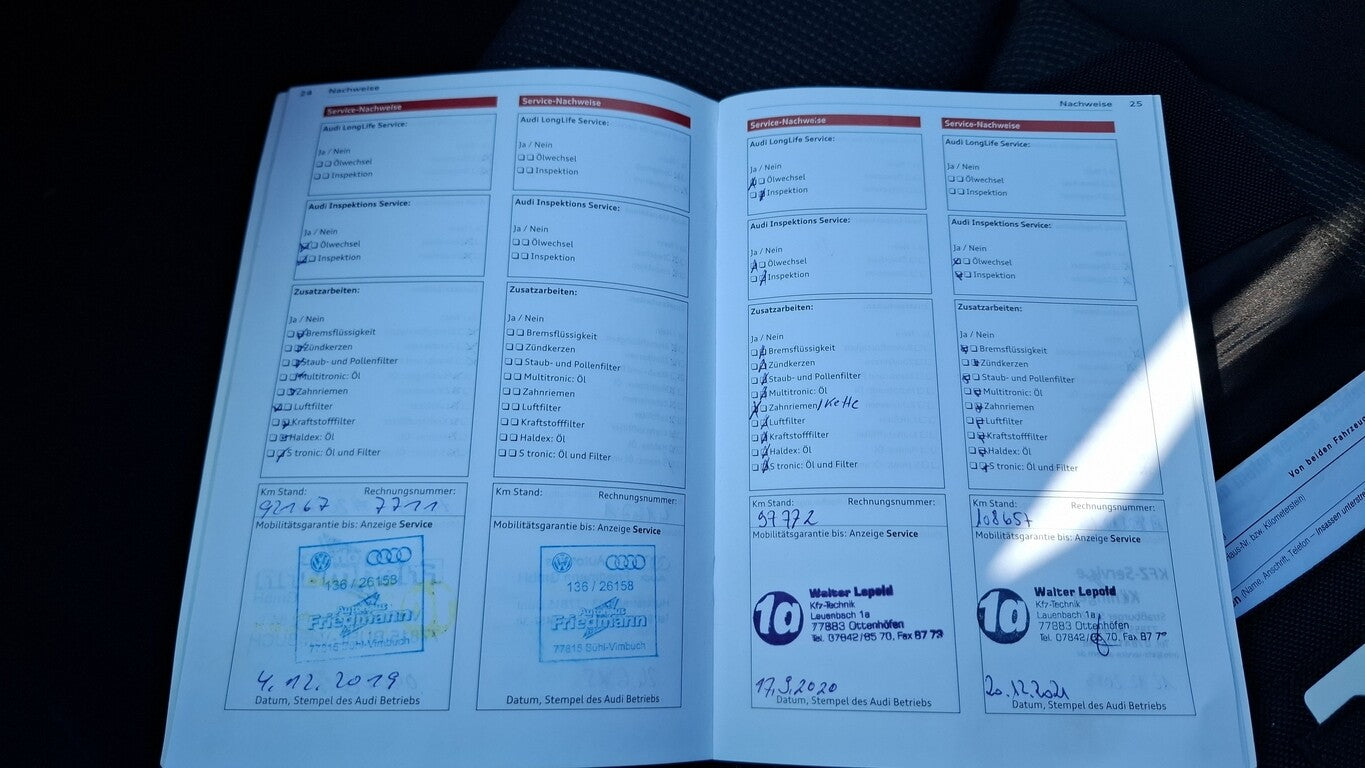 24 Nachweise
Service-Nachweise
Audi LongLife Service:
Ja / Nein
Ölwechsel
Inspektion
Audi Inspektions Service:
Ja / Nein
Ölwechsel
Inspektion
Zusatzarbeiten:
Ja / Nein
Bremsflüssigkeit
Zündkerzen
Staub- und Pollenfilter
Multitronic: Öl
Zahnriemen
Luftfilter
Kraftstofffilter
Haldex: Öl
S tronic: Öl und Filter
Km Stand: Rechnungsnummer:
92167 7711
Mobilitätsgarantie bis: Anzeige Service
136 / 26158
Autohaus
Friedmann
77815 Bühl-Vimbuch
4.12.2019
Datum, Stempel des Audi Betriebs
Service-Nachweise
Audi LongLife Service:
Ja / Nein
Ölwechsel
Inspektion
Audi Inspektions Service:
Ja / Nein
Ölwechsel
Inspektion
Zusatzarbeiten:
Ja / Nein
Bremsflüssigkeit
Zündkerzen
Staub- und Pollenfilter
Multitronic: Öl
Zahnriemen
Luftfilter
Kraftstofffilter
Haldex: Öl
S tronic: Öl und Filter
Km Stand: Rechnungsnummer:
Mobilitätsgarantie bis: Anzeige Service
136 / 26158
Autohaus
Friedmann
77815 Bühl-Vimbuch
Datum, Stempel des Audi Betriebs
Nachweise 25
Service-Nachweise
Audi LongLife Service:
Ja / Nein
Ölwechsel
Inspektion
Audi Inspektions Service:
Ja / Nein
Ölwechsel
Inspektion
Zusatzarbeiten:
Ja / Nein
Bremsflüssigkeit
Zündkerzen
Staub- und Pollenfilter
Multitronic: Öl
Zahnriemen/Kette
Luftfilter
Kraftstofffilter
Haldex: Öl
S tronic: Öl und Filter
Km Stand: Rechnungsnummer:
97772
Mobilitätsgarantie bis: Anzeige Service
1a
Walter Lepold
Kfz-Technik
Lauenbach 1a
77883 Ottenhöfen
Tel. 07842/85 70, Fax 87 73
17.9.2020
Datum, Stempel des Audi Betriebs
Service-Nachweise
Audi LongLife Service:
Ja / Nein
Ölwechsel
Inspektion
Audi Inspektions Service:
Ja / Nein
Ölwechsel
Inspektion
Zusatzarbeiten:
Ja / Nein
Bremsflüssigkeit
Zündkerzen
Staub- und Pollenfilter
Multitronic: Öl
Zahnriemen
Luftfilter
Kraftstofffilter
Haldex: Öl
S tronic: Öl und Filter
Km Stand: Rechnungsnummer:
108657
Mobilitätsgarantie bis: Anzeige Service
1a
Walter Lepold
Kfz-Technik
Lauenbach 1a
77883 Ottenhöfen
Tel. 07842/ 70, Fax 87 7
20.12.2021
Datum, Stempel des Audi Betriebs
Von beiden
Haus-Nr. bzw. Kilometerstein)
(Name, Anschrift, Telefon – Insassen